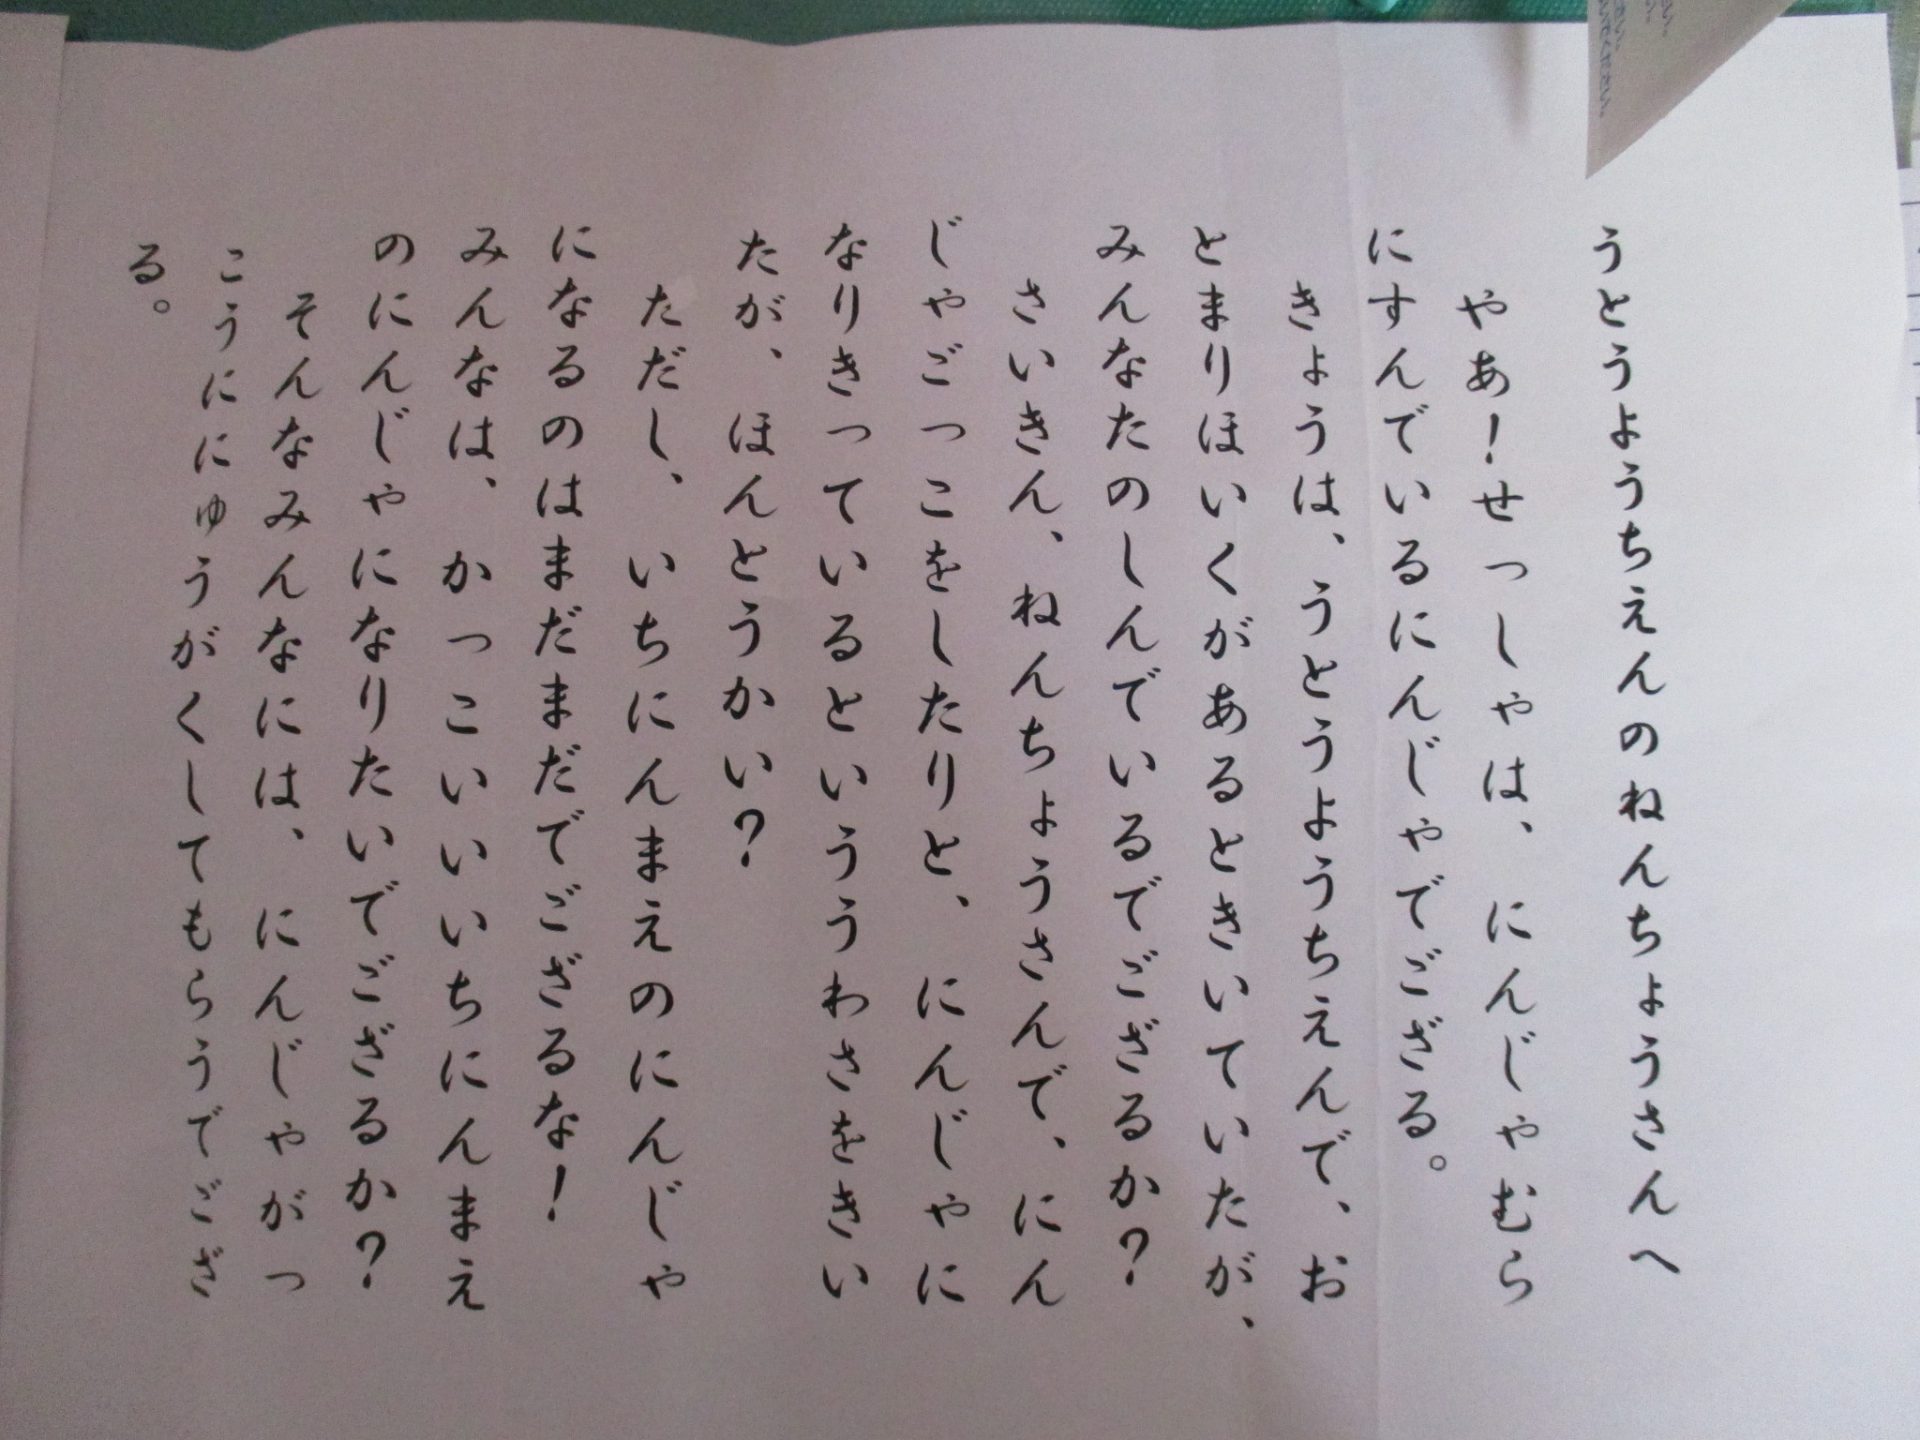 うとうようちえんのねんちょうさんへ
やあ！せっしゃは、にんじゃむら
にすんでいるにんじゃでござる。
きょうは、うとうようちえんで、お
とまりほいくがあるときいていたが、
みんなたのしんでいるでござるか？
さいきん、ねんちょうさんで、にん
じゃごっこをしたりと、にんじゃに
なりきっているといううわさをきい
たが、ほんとうかい？
ただし、いちにんまえのにんじゃ
になるのはまだまだでござるな！
みんなは、かっこいいいちにんまえ
のにんじゃになりたいでござるか？
そんなみんなには、にんじゃがっ
こうににゅうがくしてもらうでござ
る。